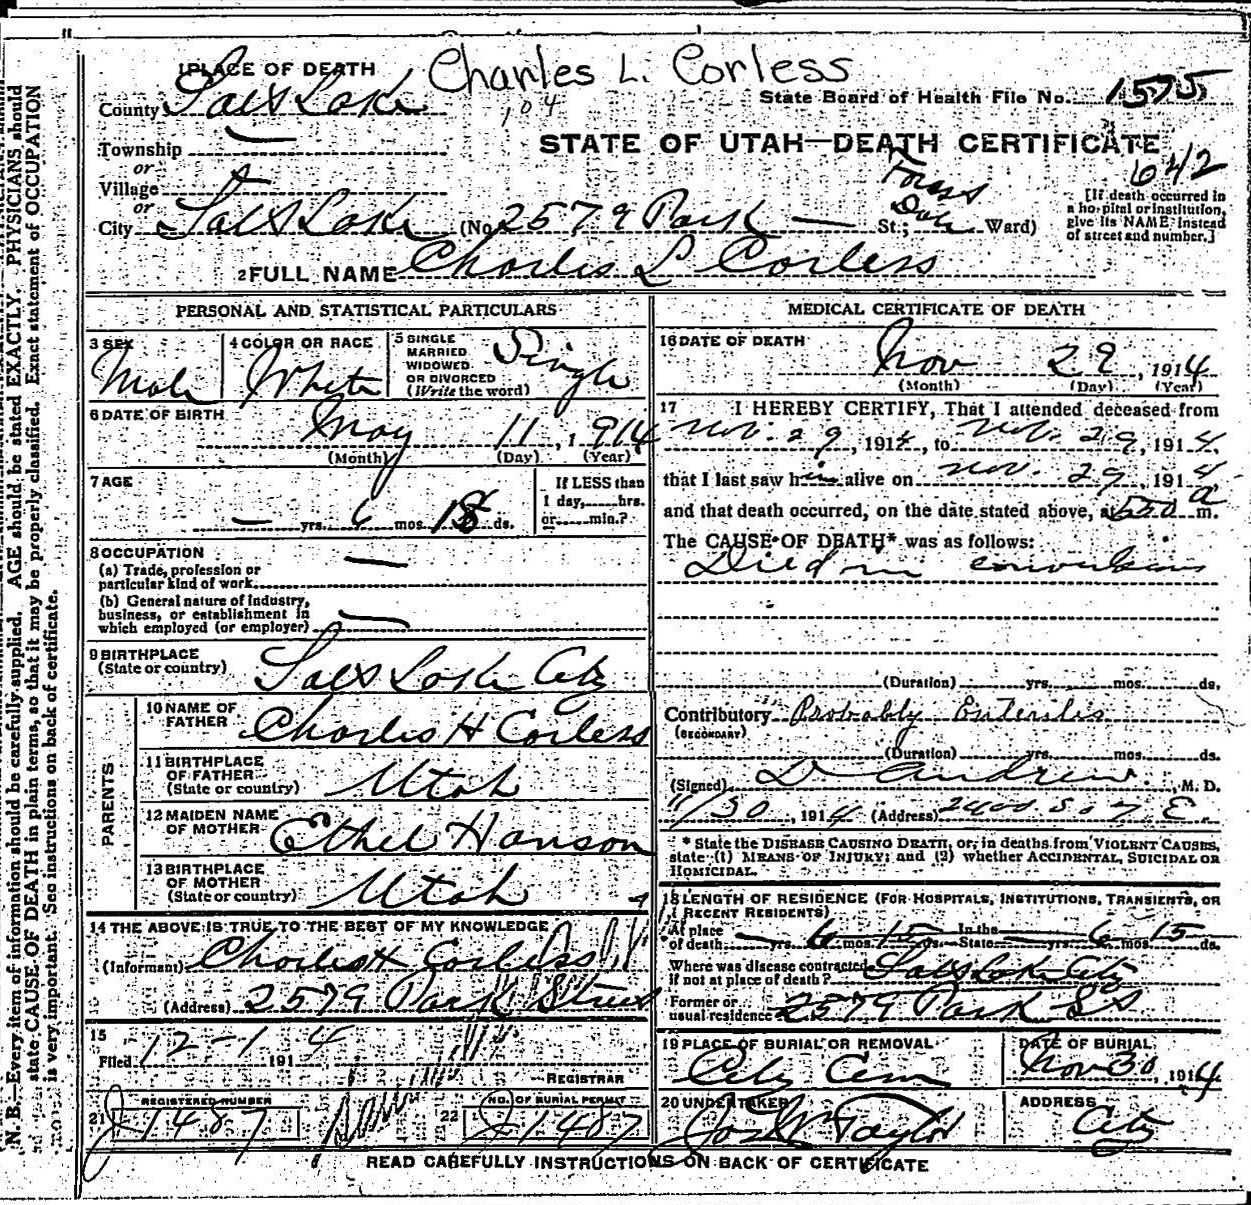 Charles L. Corless
1 PLACE OF DEATH
County Salt Lake
104
State Board of Health File No. 1575
STATE OF UTAH—DEATH CERTIFICATE
Township
or
Village
or
642
City Salt Lake (No. 2579 Park St.; Forest Dale Ward)
[If death occurred in
a hospital or institution,
give its NAME instead
of street and number.]
2 FULL NAME Charles L Corless
PERSONAL AND STATISTICAL PARTICULARS
3 SEX Male
4 COLOR OR RACE White
5 SINGLE
MARRIED
WIDOWED
OR DIVORCED
(Write the word) Single
6 DATE OF BIRTH
May 11, 1914
(Month) (Day) (Year)
7 AGE
— yrs. 6 mos. 18 ds.
If LESS than
1 day, hrs.
or min.?
8 OCCUPATION
(a) Trade, profession or
particular kind of work —
(b) General nature of industry,
business, or establishment in
which employed (or employer) —
9 BIRTHPLACE
(State or country) Salt Lake City
PARENTS
10 NAME OF
FATHER Charles H Corless
11 BIRTHPLACE
OF FATHER
(State or country) Utah
12 MAIDEN NAME
OF MOTHER Ethel Hanson
13 BIRTHPLACE
OF MOTHER
(State or country) Utah
14 THE ABOVE IS TRUE TO THE BEST OF MY KNOWLEDGE
(Informant) Charles H Corless
(Address) 2579 Park Street
15
Filed 12-1 1914
REGISTRAR
21 REGISTERED NUMBER
J 1487
22 NO. OF BURIAL PERMIT
J 1487
MEDICAL CERTIFICATE OF DEATH
16 DATE OF DEATH
Nov 29, 1914
(Month) (Day) (Year)
17 I HEREBY CERTIFY, That I attended deceased from
Nov. 29, 1914, to Nov. 29, 1914,
that I last saw him alive on Nov. 29, 1914
and that death occurred, on the date stated above, at 550 a m.
The CAUSE OF DEATH* was as follows:
Died in convulsions
(Duration) yrs. mos. ds.
Contributory Probably Enteritis
(SECONDARY)
(Duration) yrs. mos. ds.
(Signed) D Andrew, M. D.
11/30, 1914 (Address) 2400 So 7 E.
* State the DISEASE CAUSING DEATH, or, in deaths from VIOLENT CAUSES,
state (1) MEANS OF INJURY; and (2) whether ACCIDENTAL, SUICIDAL OR
HOMICIDAL.
18 LENGTH OF RESIDENCE (FOR HOSPITALS, INSTITUTIONS, TRANSIENTS, OR
RECENT RESIDENTS)
At place In the
of death — yrs. 6 mos. 15 ds. State — yrs. 6 mos. 15 ds.
Where was disease contracted
if not at place of death? Salt Lake City
Former or
usual residence 2579 Park St
19 PLACE OF BURIAL OR REMOVAL
City Cem
DATE OF BURIAL
Nov 30, 1914
20 UNDERTAKER
Jos W Taylor
ADDRESS
City
READ CAREFULLY INSTRUCTIONS ON BACK OF CERTIFICATE
N. B.—Every item of information should be carefully supplied. AGE should be stated EXACTLY. PHYSICIANS should
state CAUSE OF DEATH in plain terms, so that it may be properly classified. Exact statement of OCCUPATION
is very important. See instructions on back of certificate.